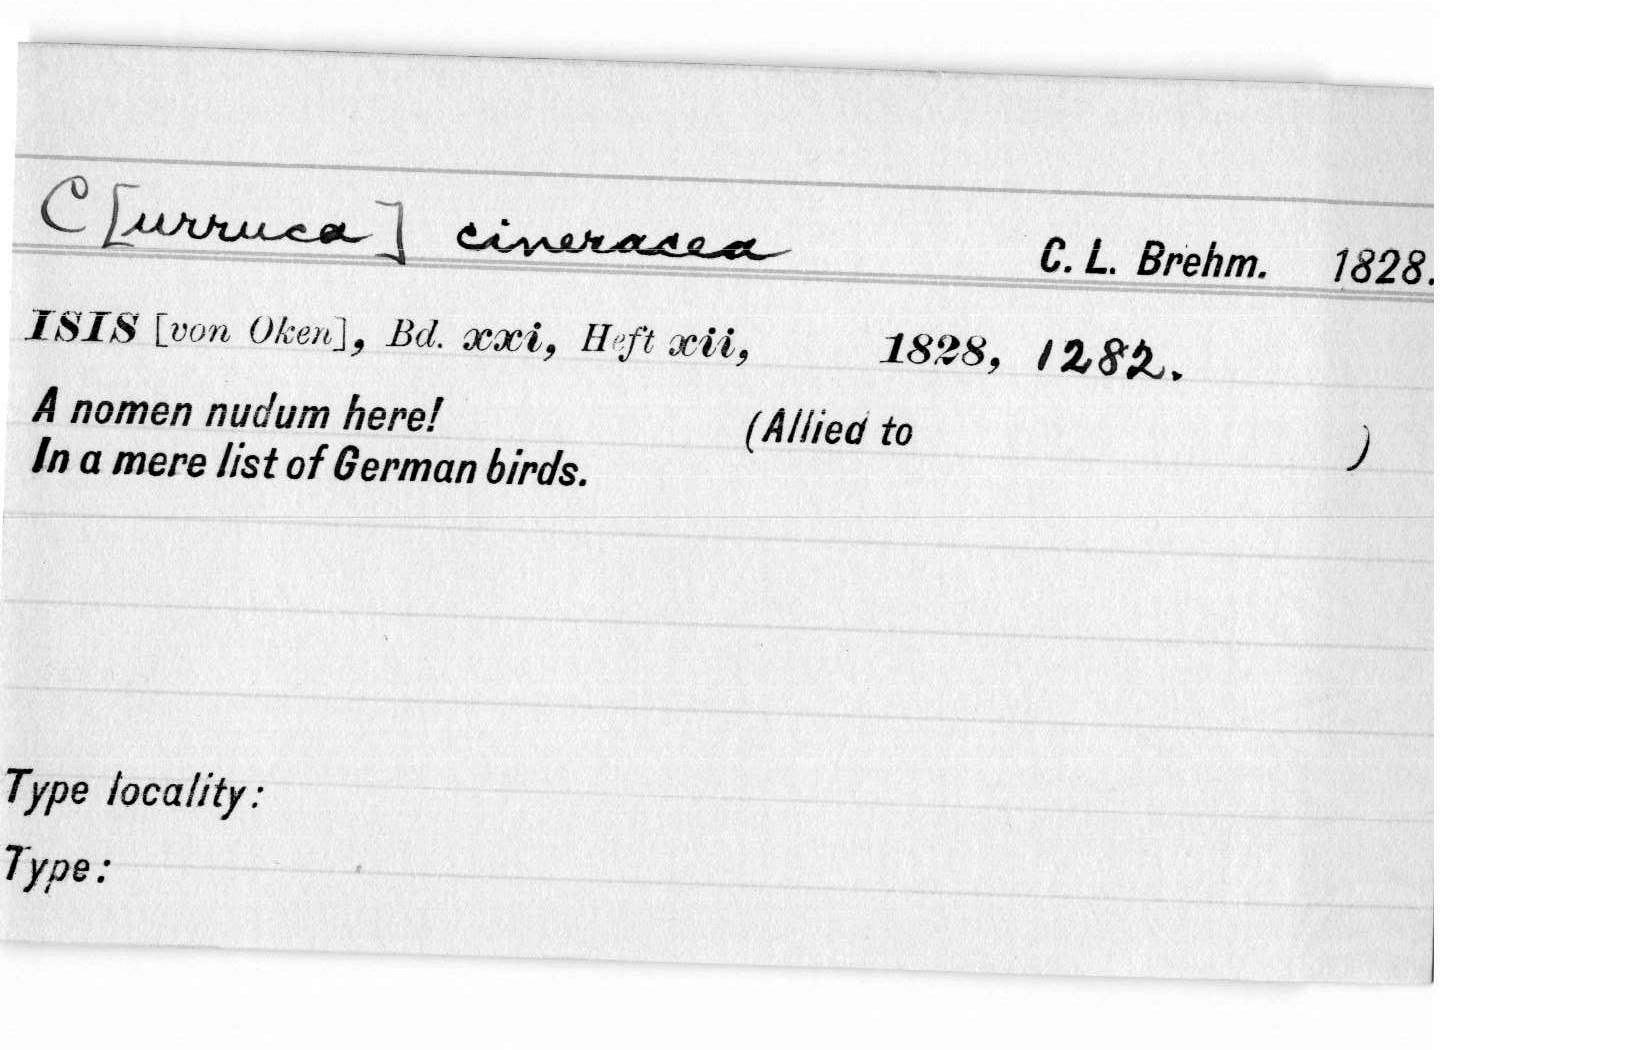 C[urruca] cineracea C. L. Brehm. 1828.
ISIS [von Oken], Bd. xxi, Heft xii, 1828, 1282.
A nomen nudum here! (Allied to )
In a mere list of German birds.
Type locality:
Type: